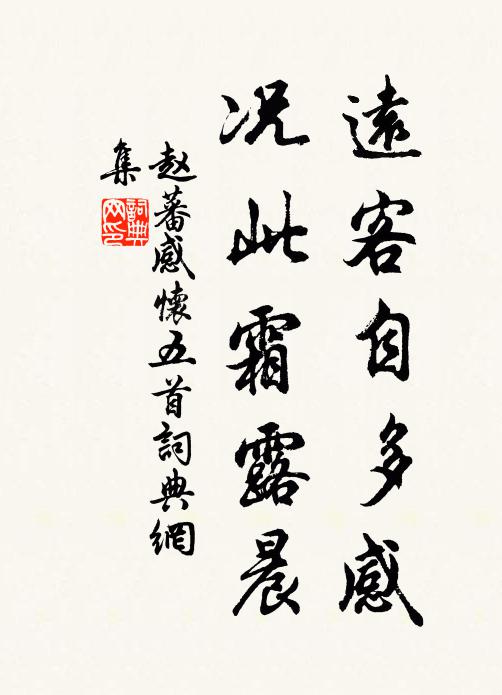 遠客自多感
况此霜露晨
赵蕃感懷五首詞典網
集
詞典
网印